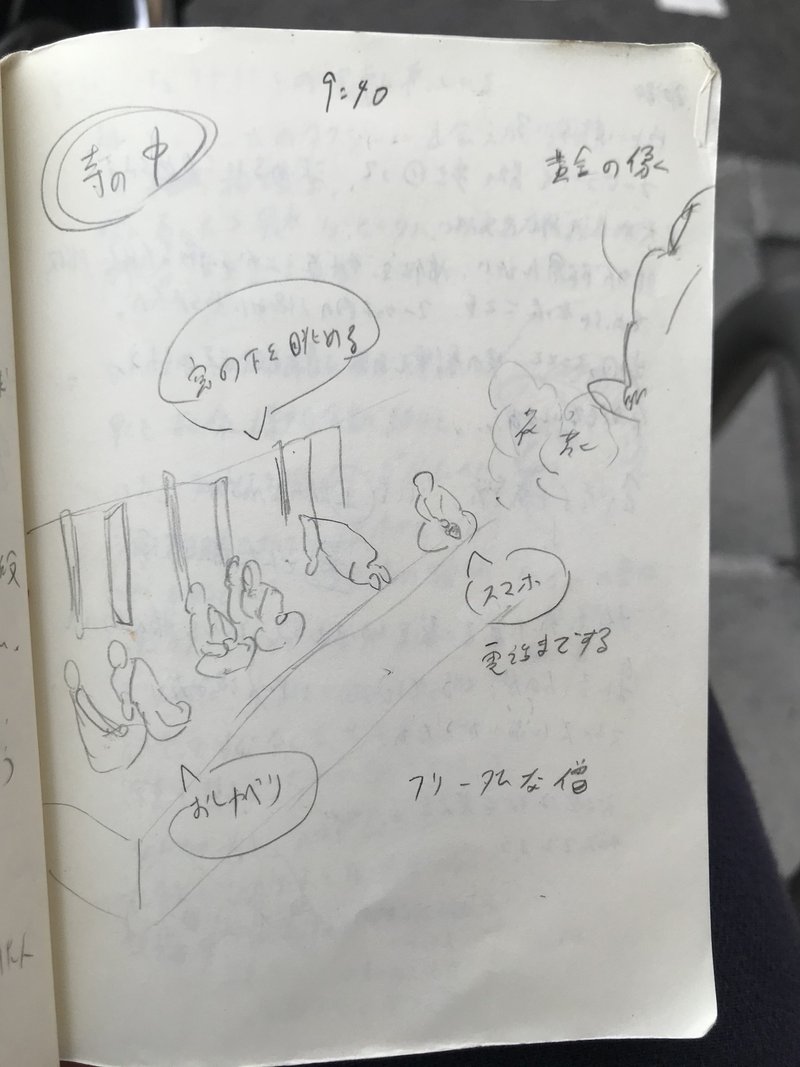 9:40
寺の中
黄金の像
窓の下を眺める
スマホ
電話までする
おしゃべり
フリーダムな僧